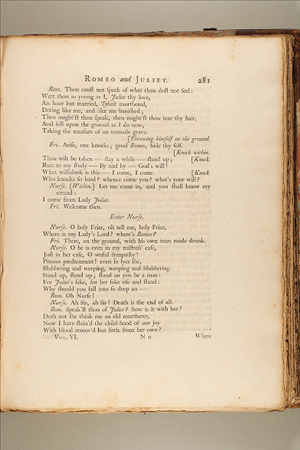 ROMEO and JULIET. 281
Rom. Thou canst not speak of what thou dost not feel:
Wert thou as young as I, Juliet thy love,
An hour but married, Tybalt murthered,
Doting like me, and like me banished;
Then might'st thou speak, then might'st thou tear thy hair,
And fall upon the ground as I do now,
Taking the measure of an unmade grave.
[Throwing himself on the ground.
Fri. Arise, one knocks; good Romeo, hide thy self.
[Knock within.
Thou wilt be taken — stay a while — stand up; [Knock.
Run to my study — By and by — God's will!
What wilfulness is this — I come, I come. [Knock.
Who knocks so hard? whence come you? what's your will?
Nurse. [Within.] Let me come in, and you shall know my
errand:
I come from Lady Juliet.
Fri. Welcome then.
Enter Nurse.
Nurse. O holy Friar, oh tell me, holy Friar,
Where is my Lady's Lord? where's Romeo?
Fri. There, on the ground, with his own tears made drunk.
Nurse. O he is even in my mistress' case,
Just in her case, O woful sympathy!
Piteous predicament! even so lyes she,
Blubbering and weeping, weeping and blubbering.
Stand up, stand up; stand an you be a man:
For Juliet's sake, for her sake rise and stand:
Why should you fall into so deep an —
Rom. Oh Nurse!
Nurse. Ah Sir, ah Sir! Death is the end of all.
Rom. Speak'st thou of Juliet? how is it with her?
Doth not she think me an old murtherer,
Now I have stain'd the child-hood of our joy
With blood remov'd but little from her own?
VOL. VI. N n Where